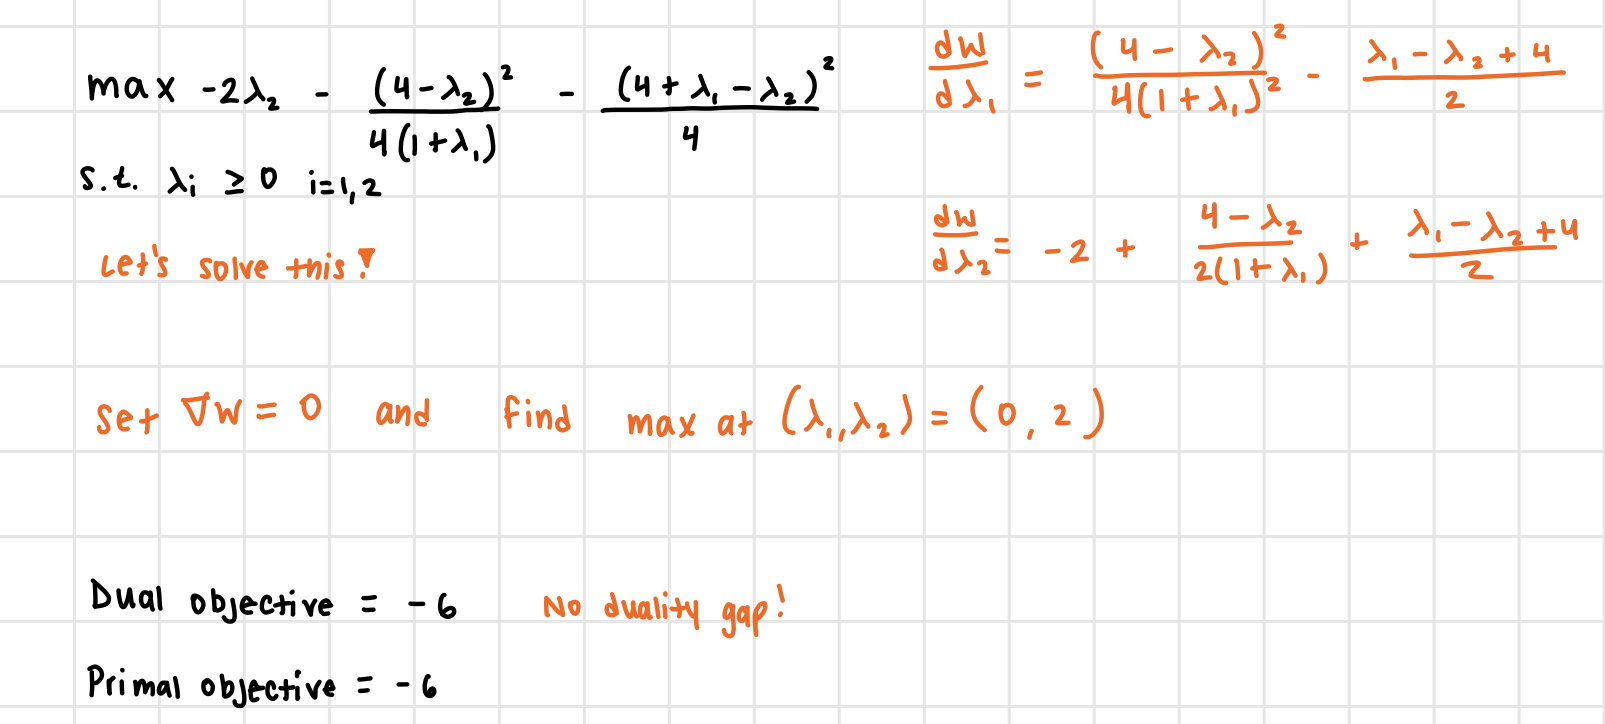 max -2λ₂ - (4-λ₂)²/4(1+λ₁) - (4+λ₁-λ₂)²/4
s.t. λi ≥ 0 i=1,2
Let's solve this!
dW/dλ₁ = (4-λ₂)²/4(1+λ₁)² - λ₁-λ₂+4/2
dW/dλ₂ = -2 + 4-λ₂/2(1+λ₁) + λ₁-λ₂+4/2
set ∇W = 0 and find max at (λ₁,λ₂) = (0,2)
Dual objective = -6 No duality gap!
Primal objective = -6